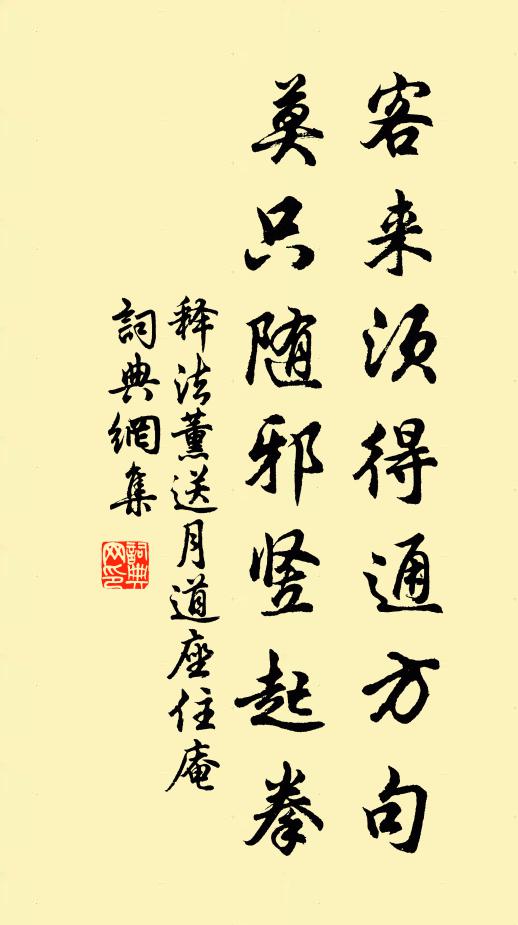 客来须得通方句
莫只随邪竖起拳
释法薰送月道座住庵
詞典網集
詞典网印